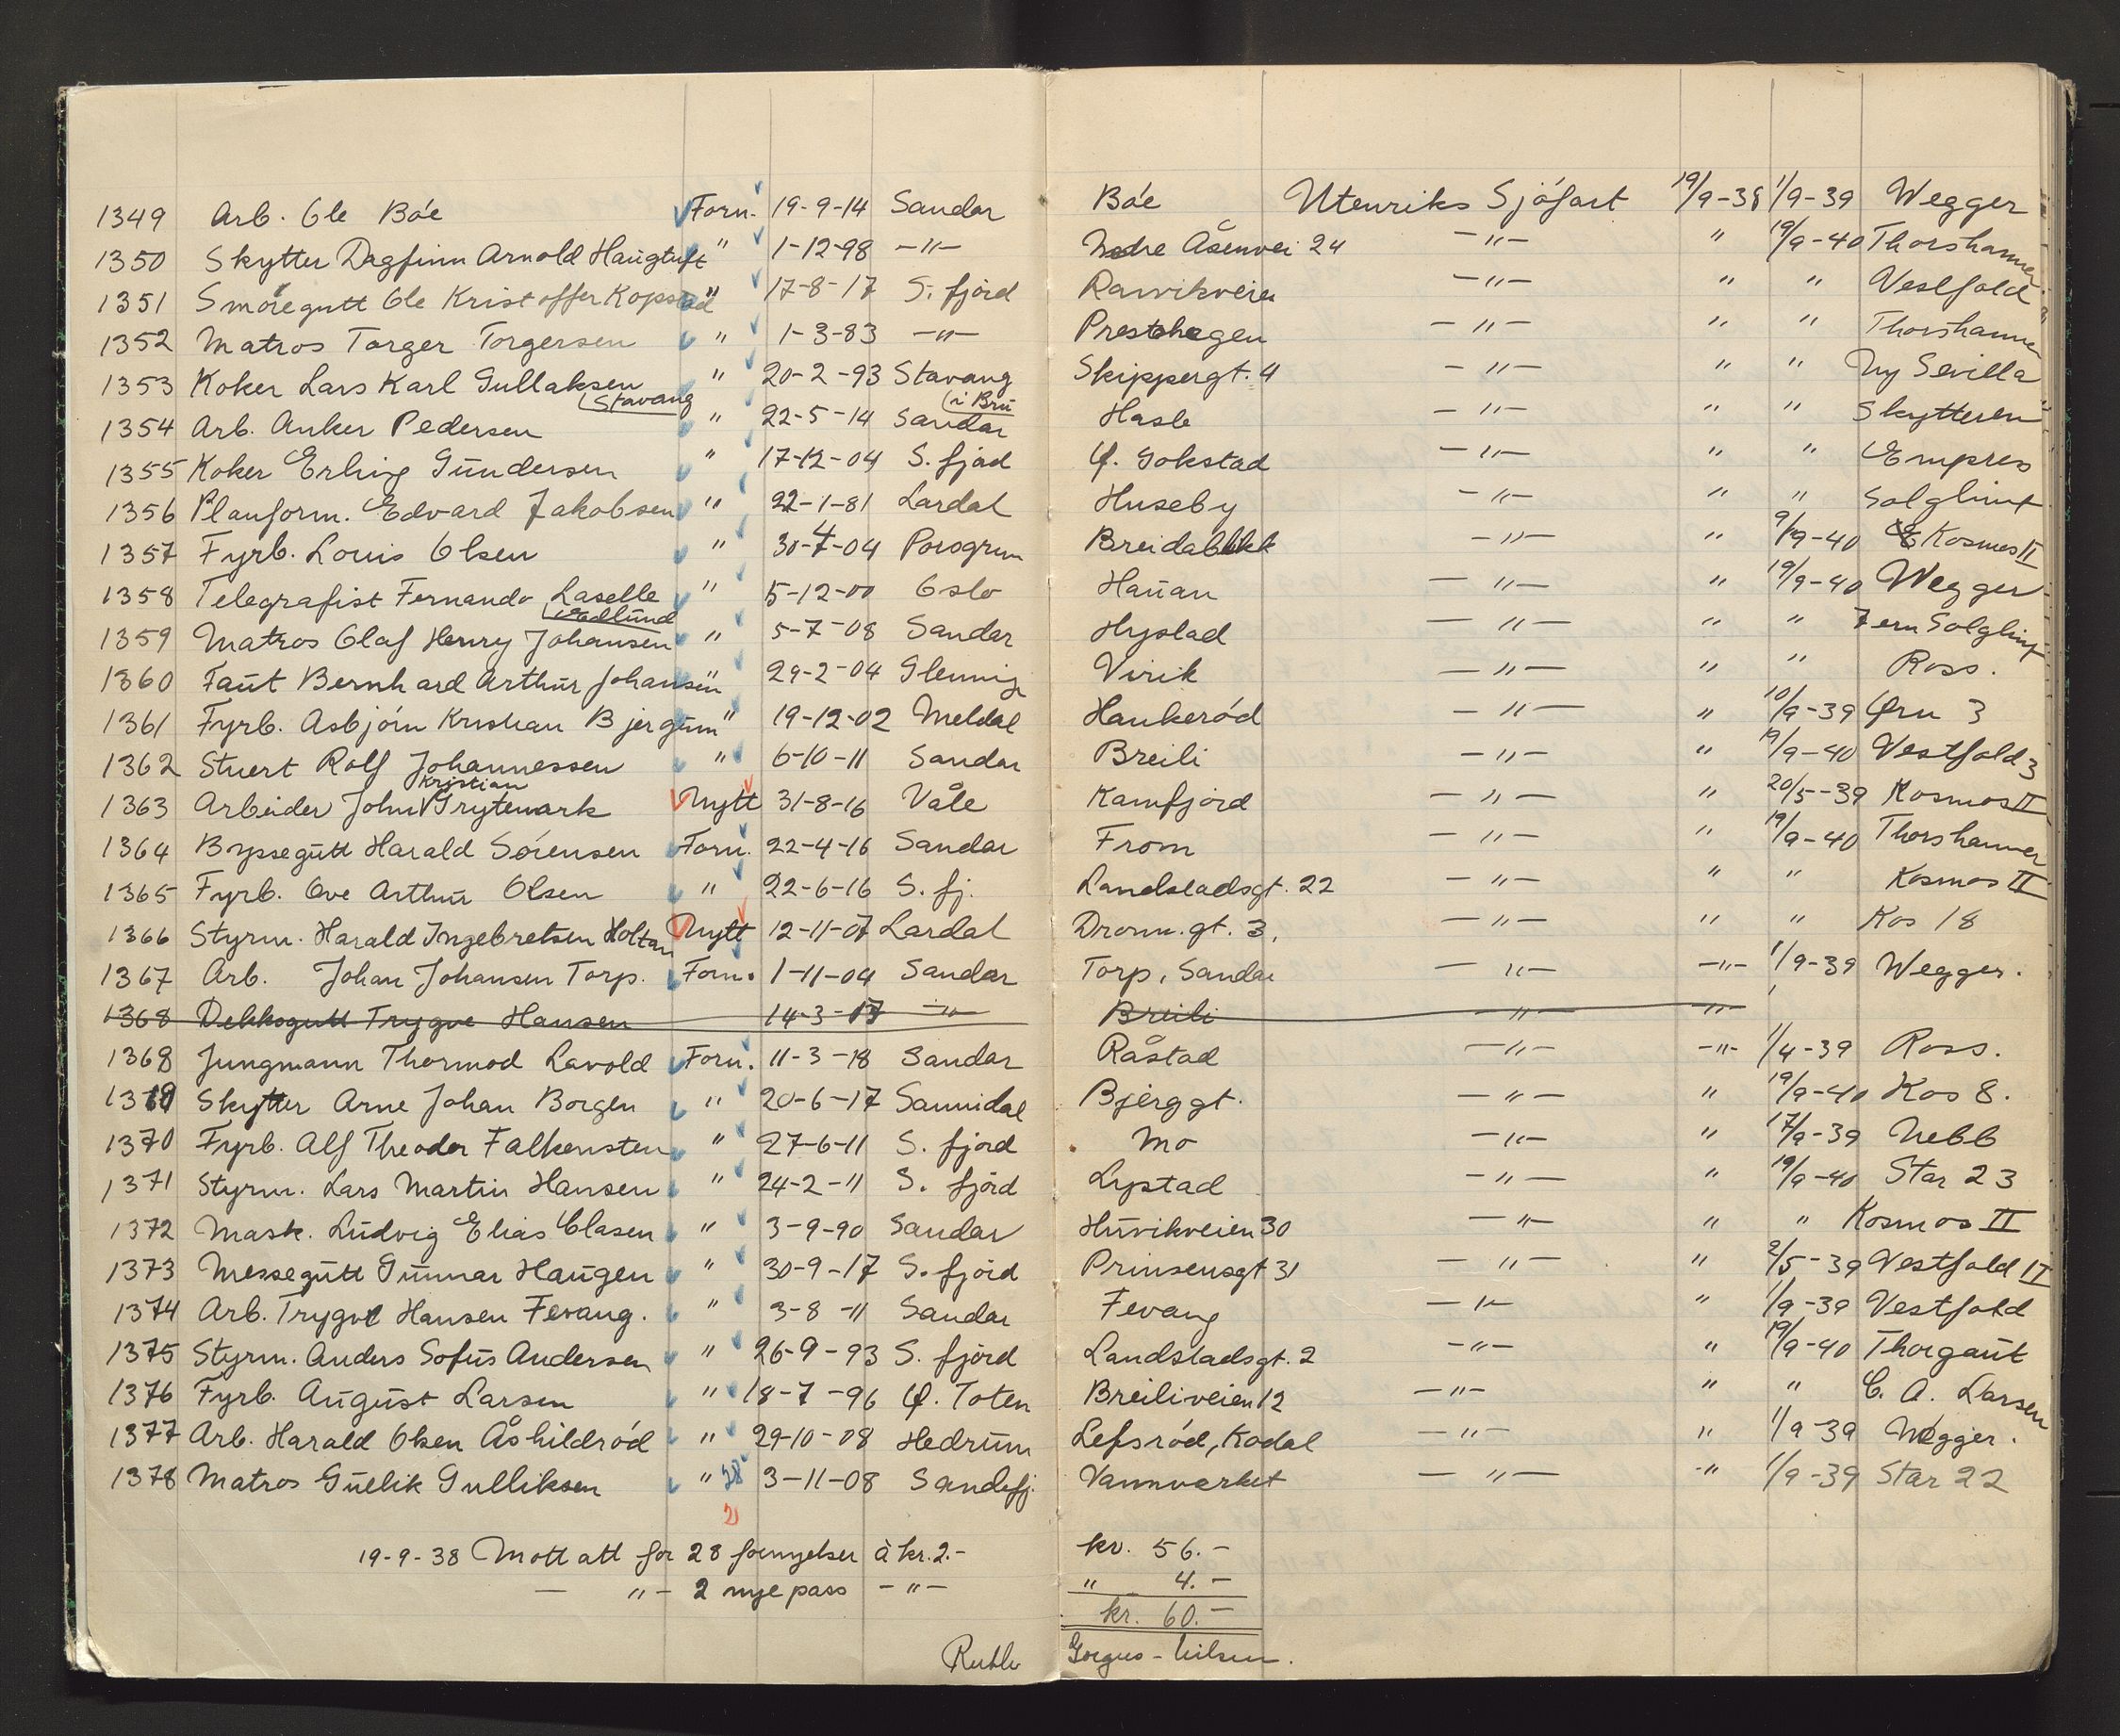 1349 Arb. Ole Bóe Forn. 19-9-14 Sandar Bóe Utenriks Sjófart 19/9-38 1/9-39 Wegger
1350 Skytter Dagfinn Arnold Haugtuft " 1-12-98 -"- Nedre Åsenvei 24 -"- " 19/9-40 Thorshammer
1351 Smóregutt Ole Kristoffer Kopstad " 17-8-17 S. fjord Ranvikveien -"- " " Vestfold
1352 Matros Torger Torgersen " 1-3-83 -"- Prestehagen -"- " " Thorshammer
1353 Koker Lars Karl Gullaksen " 20-2-93 Stavang Skippergt. 4 -"- " " Ny Sevilla
(Stavang (i Bru
1354 Arb. Anker Pedersen " 22-5-14 Sandar Hasle -"- " " Skytteren
1355 Koker Erling Gundersen " 17-12-04 S. fjord Ø. Gokstad -"- " " Empres
1356 Planform. Edvard Jakobsen " 22-1-81 Lardal Huseby -"- " " Solglimt
1357 Fyrb. Louis Olsen " 30-4-04 Porsgrun Breidablikk -"- " 9/9-40 Kosmos II
1358 Telegrafist Fernando Laselle " 5-12-00 Oslo Hauan -"- " 19/9-40 Wegger
(Edlund
1359 Matros Olaf Henry Johansen " 5-7-08 Sandar Hystad -"- " " Fern Solglimt
1360 Faut Bernhard Arthur Johansen " 29-2-04 Glemmige Virik -"- " " Ross.
1361 Fyrb. Asbjórn Kristian Bjergum " 19-12-02 Meldal Haukeród -"- " 10/9-39 Ørn 3
1362 Stuert Rolf Johannessen " 6-10-11 Sandar Breili -"- " 19/9-40 Vestfold 3
Kristian
1363 Arbeider John Grytemark Nytt 31-8-16 Våle Kamfjord -"- " 20/5-39 Kosmos II
1364 Byssegutt Harald Sórensen Forn. 22-4-16 Sandar From -"- " 19/9-40 Thorshammer
1365 Fyrb. Ove Arthur Olsen " 22-6-16 S. fj. Landstadsgt. 22 -"- " " Kosmos II
1366 Styrm. Harald Ingebretsen Holtan Nytt 12-11-07 Lardal Dronn.gt. 3. -"- " " Kos 18
1367 Arb. Johan Johansen Torp. Forn. 1-11-04 Sandar Torp, Sandar -"- -"- 1/9-39 Wegger.
1368 Dekksgutt Trygve Hansen 14-3-17 -"- Breili -"- -"-
1368 Jungmann Thormod Lavold Forn. 11-3-18 Sandar Råstad -"- -"- 1/4-39 Ross.
1369 Skytter Arne Johan Borgen " 20-6-17 Sannidal Bjerggt. -"- " 19/9-40 Kos 8.
1370 Fyrb. Alf Theodor Falkensten " 27-6-11 S. fjord Mo -"- " 17/9-39 Nebb
1371 Styrm. Lars Martin Hansen " 24-2-11 S. fjord Lystad -"- " 19/9-40 Star 23
1372 Mask. Ludvig Elias Clasen " 3-9-90 Sandar Huvikveien 30 -"- " " Kosmos II
1373 Messegutt Gunnar Haugen " 30-9-17 S. fjord Prinsensgt 31 -"- " 2/5-39 Vestfold II
1374 Arb. Trygve Hansen Fevang. " 3-8-11 Sandar Fevang -"- " 1/9-39 Vestfold
1375 Styrm. Anders Sofus Andersen " 26-9-93 S. fjord Landstadsgt. 2 -"- " 19/9-40 Thorgaut
1376 Fyrb. August Larsen " 18-7-96 Ø. Toten Breiliveien 12 -"- " " C. A. Larsen
1377 Arb. Harald Olsen Åshildród " 29-10-08 Hedrum Lefsród, Kodal -"- " 1/9-39 Wegger.
1378 Matros Gullik Gulliksen " 28 3-11-08 Sandefj. Vannverket -"- -" 1/9-39 Star 22
2
19-9-38 Mottatt for 28 fornyelser à kr. 2.- kr. 56.-
- "- 2 nye pass -"- " 4.-
kr. 60.-